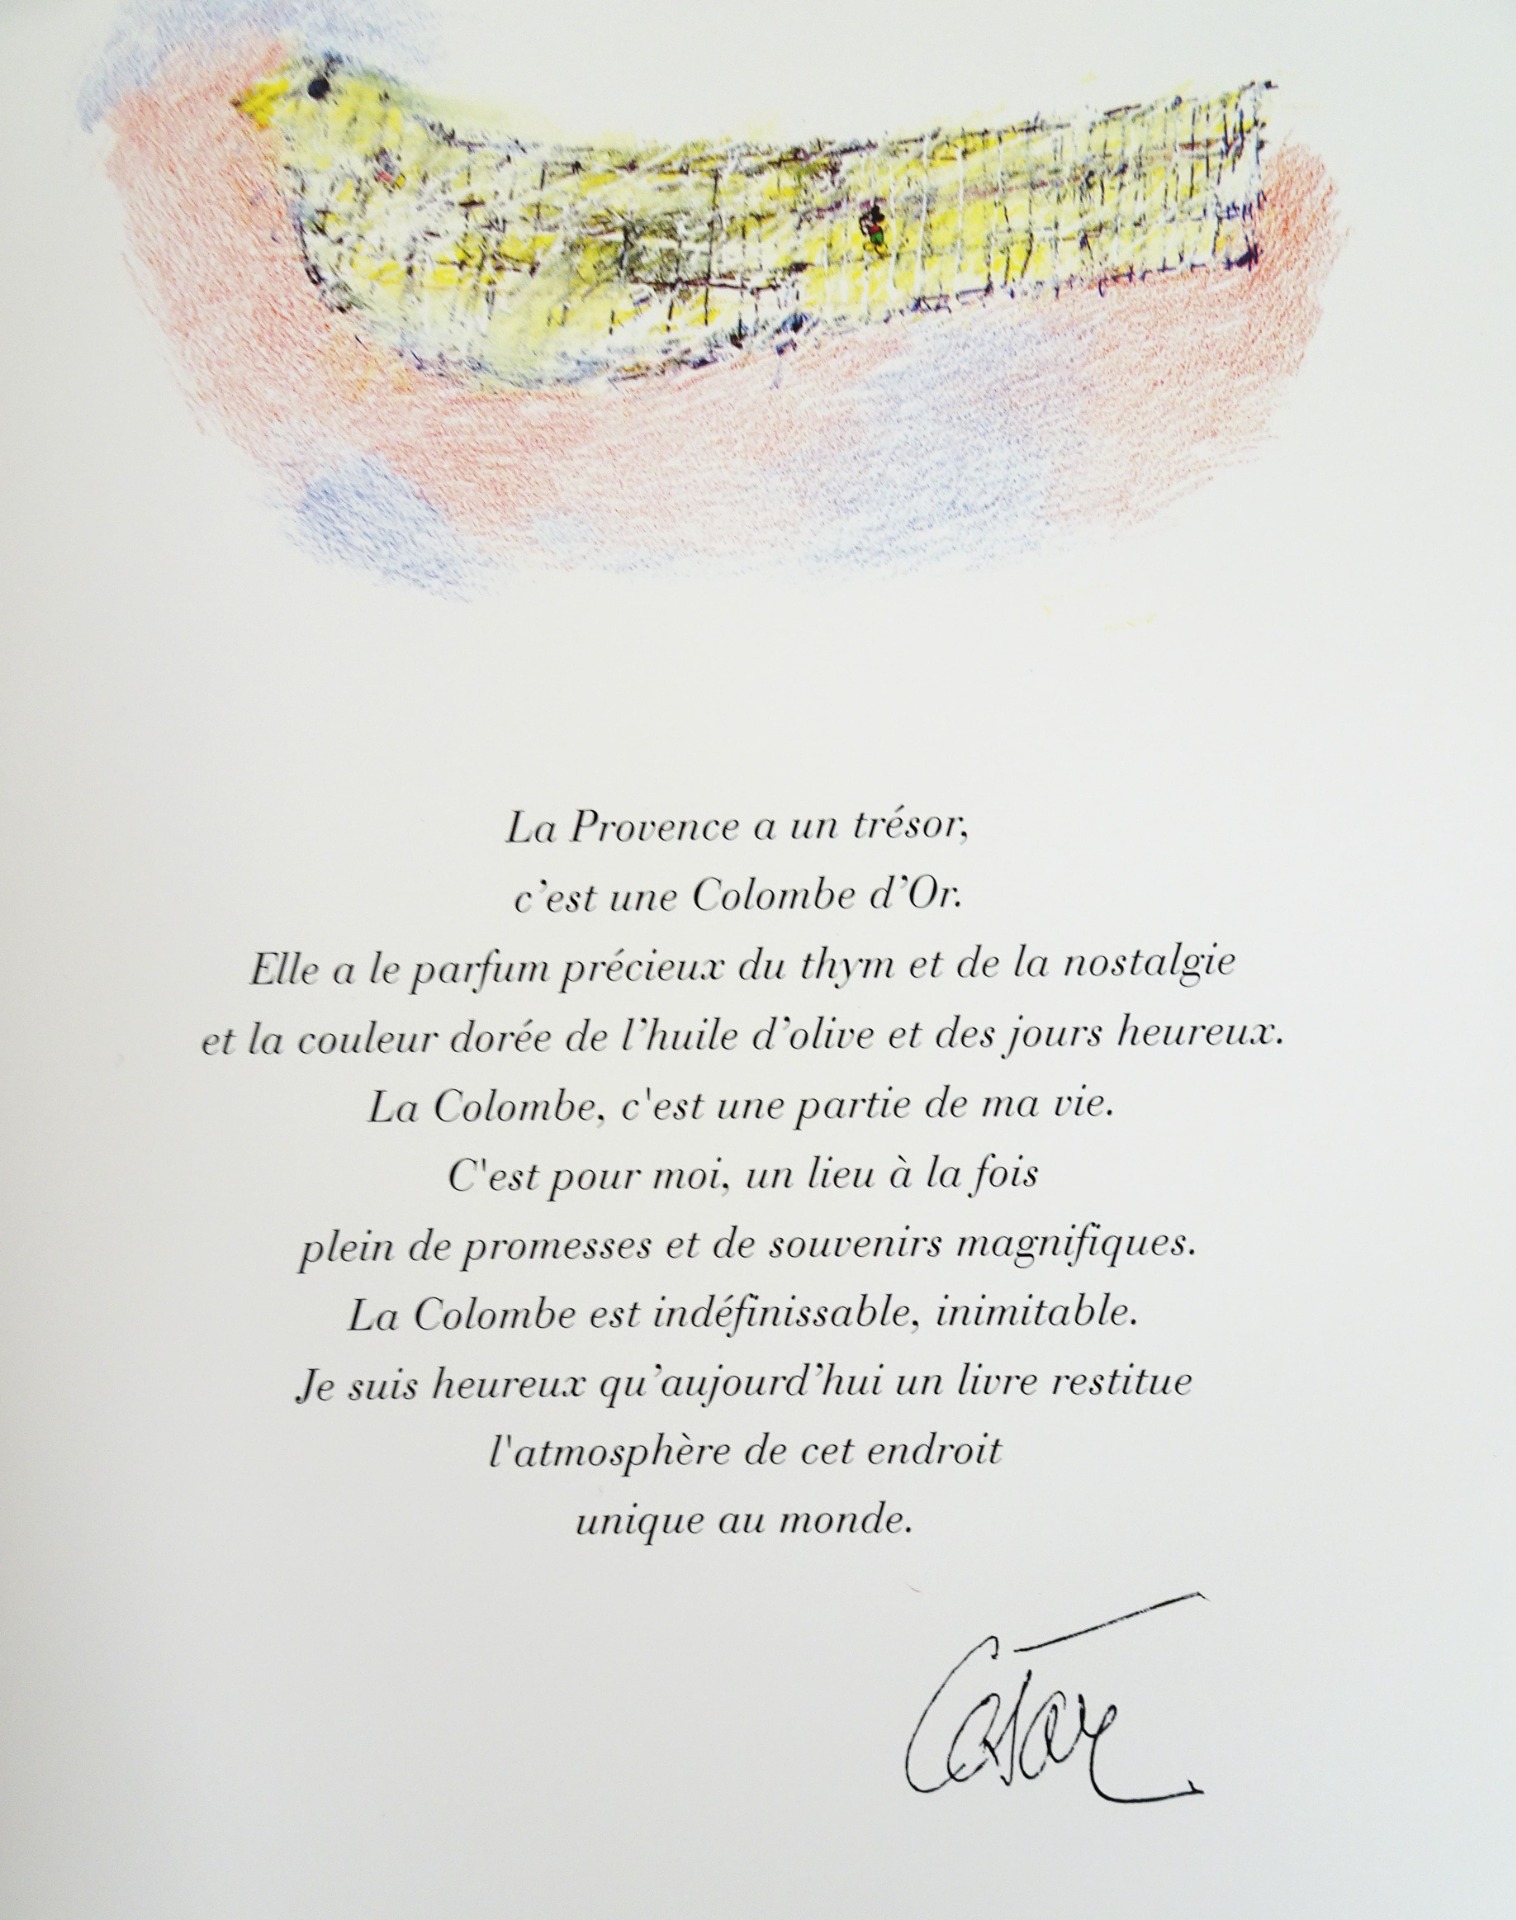 La Provence a un trésor,
c’est une Colombe d’Or.
Elle a le parfum précieux du thym et de la nostalgie
et la couleur dorée de l’huile d’olive et des jours heureux.
La Colombe, c'est une partie de ma vie.
C'est pour moi, un lieu à la fois
plein de promesses et de souvenirs magnifiques.
La Colombe est indéfinissable, inimitable.
Je suis heureux qu’aujourd’hui un livre restitue
l'atmosphère de cet endroit
unique au monde.
César